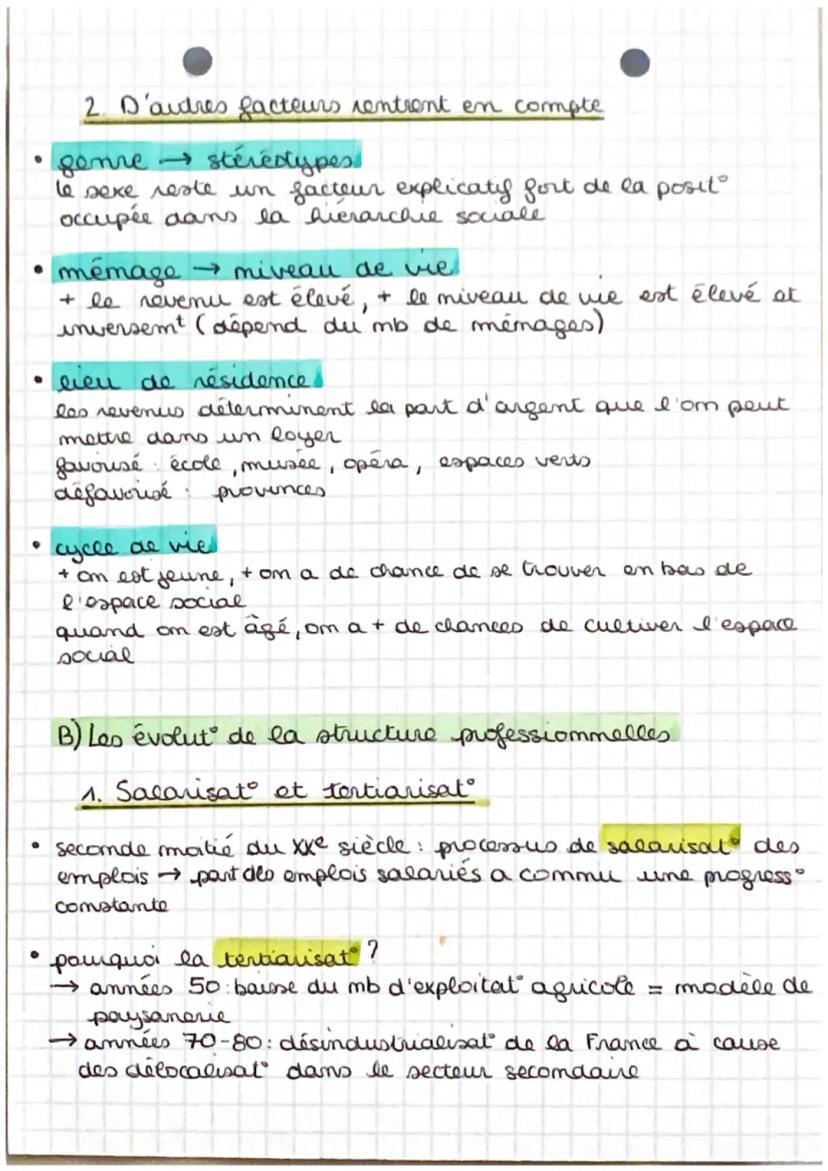 2. D'autres facteurs rentrent en compte
• genre → stéréotypes
le sexe reste un facteur explicatif fort de la posit°
occupée dans la hiérarchie sociale
• ménage → niveau de vie
+ le revenu est élevé, + le niveau de vie est élevé et
inversemt (dépend du nb de ménages)
• lieu de résidence
les revenus déterminent la part d'argent que l'on peut
mettre dans un loyer
favorisé : école, musée, opéra, espaces verts
défavorisé : provinces
• cycle de vie
+ on est jeune, + on a de chance de se trouver en bas de
l'espace social
quand on est âgé, on a + de chances de cultiver l'espace
social
B) Les évolut° de la structure professionnelles
1. Salarisat° et tertiarisat°
• seconde moitié du XXe siècle : processus de salarisat° des
emplois → part des emplois salariés a connu une progress°
constante
• pourquoi la tertiarisat° ?
→ années 50 : baisse du nb d'exploitat° agricole = modèle de
paysanerie
→ années 70-80 : désindustrialisat° de la France à cause
des délocalisat° dans le secteur secondaire